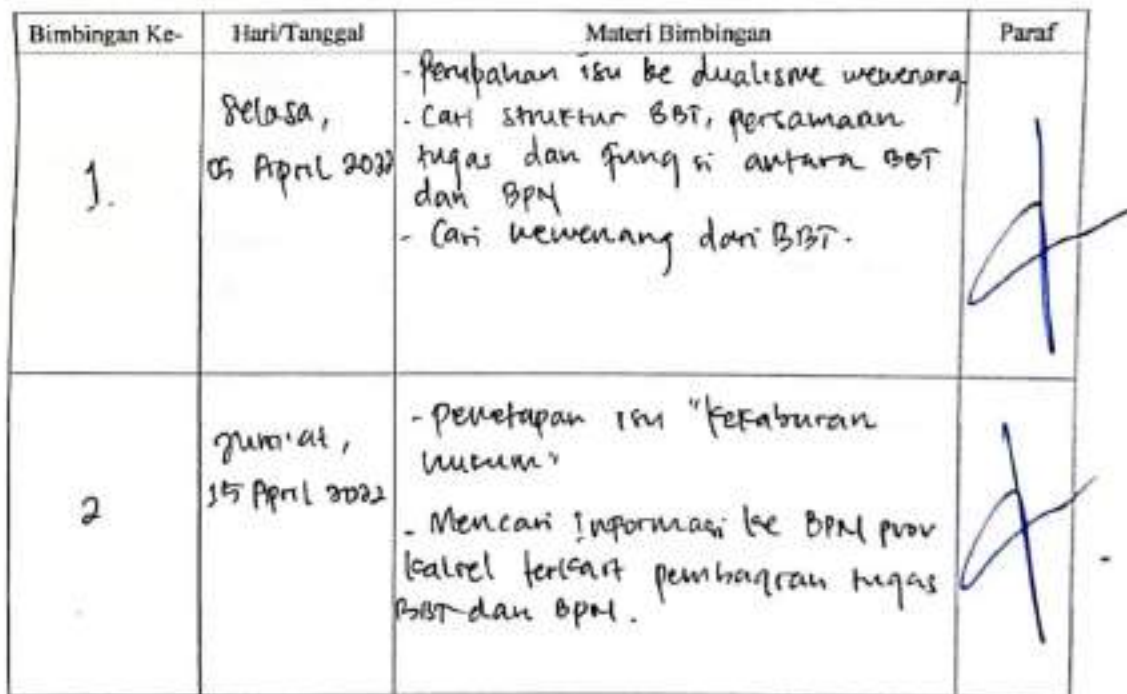 Bimbingan Ke- Hari/Tanggal Materi Bimbingan Paraf
1.
Selasa,
05 April 2022
- Perubahan isu ke dualisme wewenang
- Cari struktur BBT, persamaan
tugas dan fungsi antara BBT
dan BPN
- Cari wewenang dari BBT.
2
Jum'at,
15 April 2022
- Penetapan isu "kekaburan
hukum"
- Mencari informasi ke BPN prov
kalsel terkait pembagian tugas
BBT dan BPN.